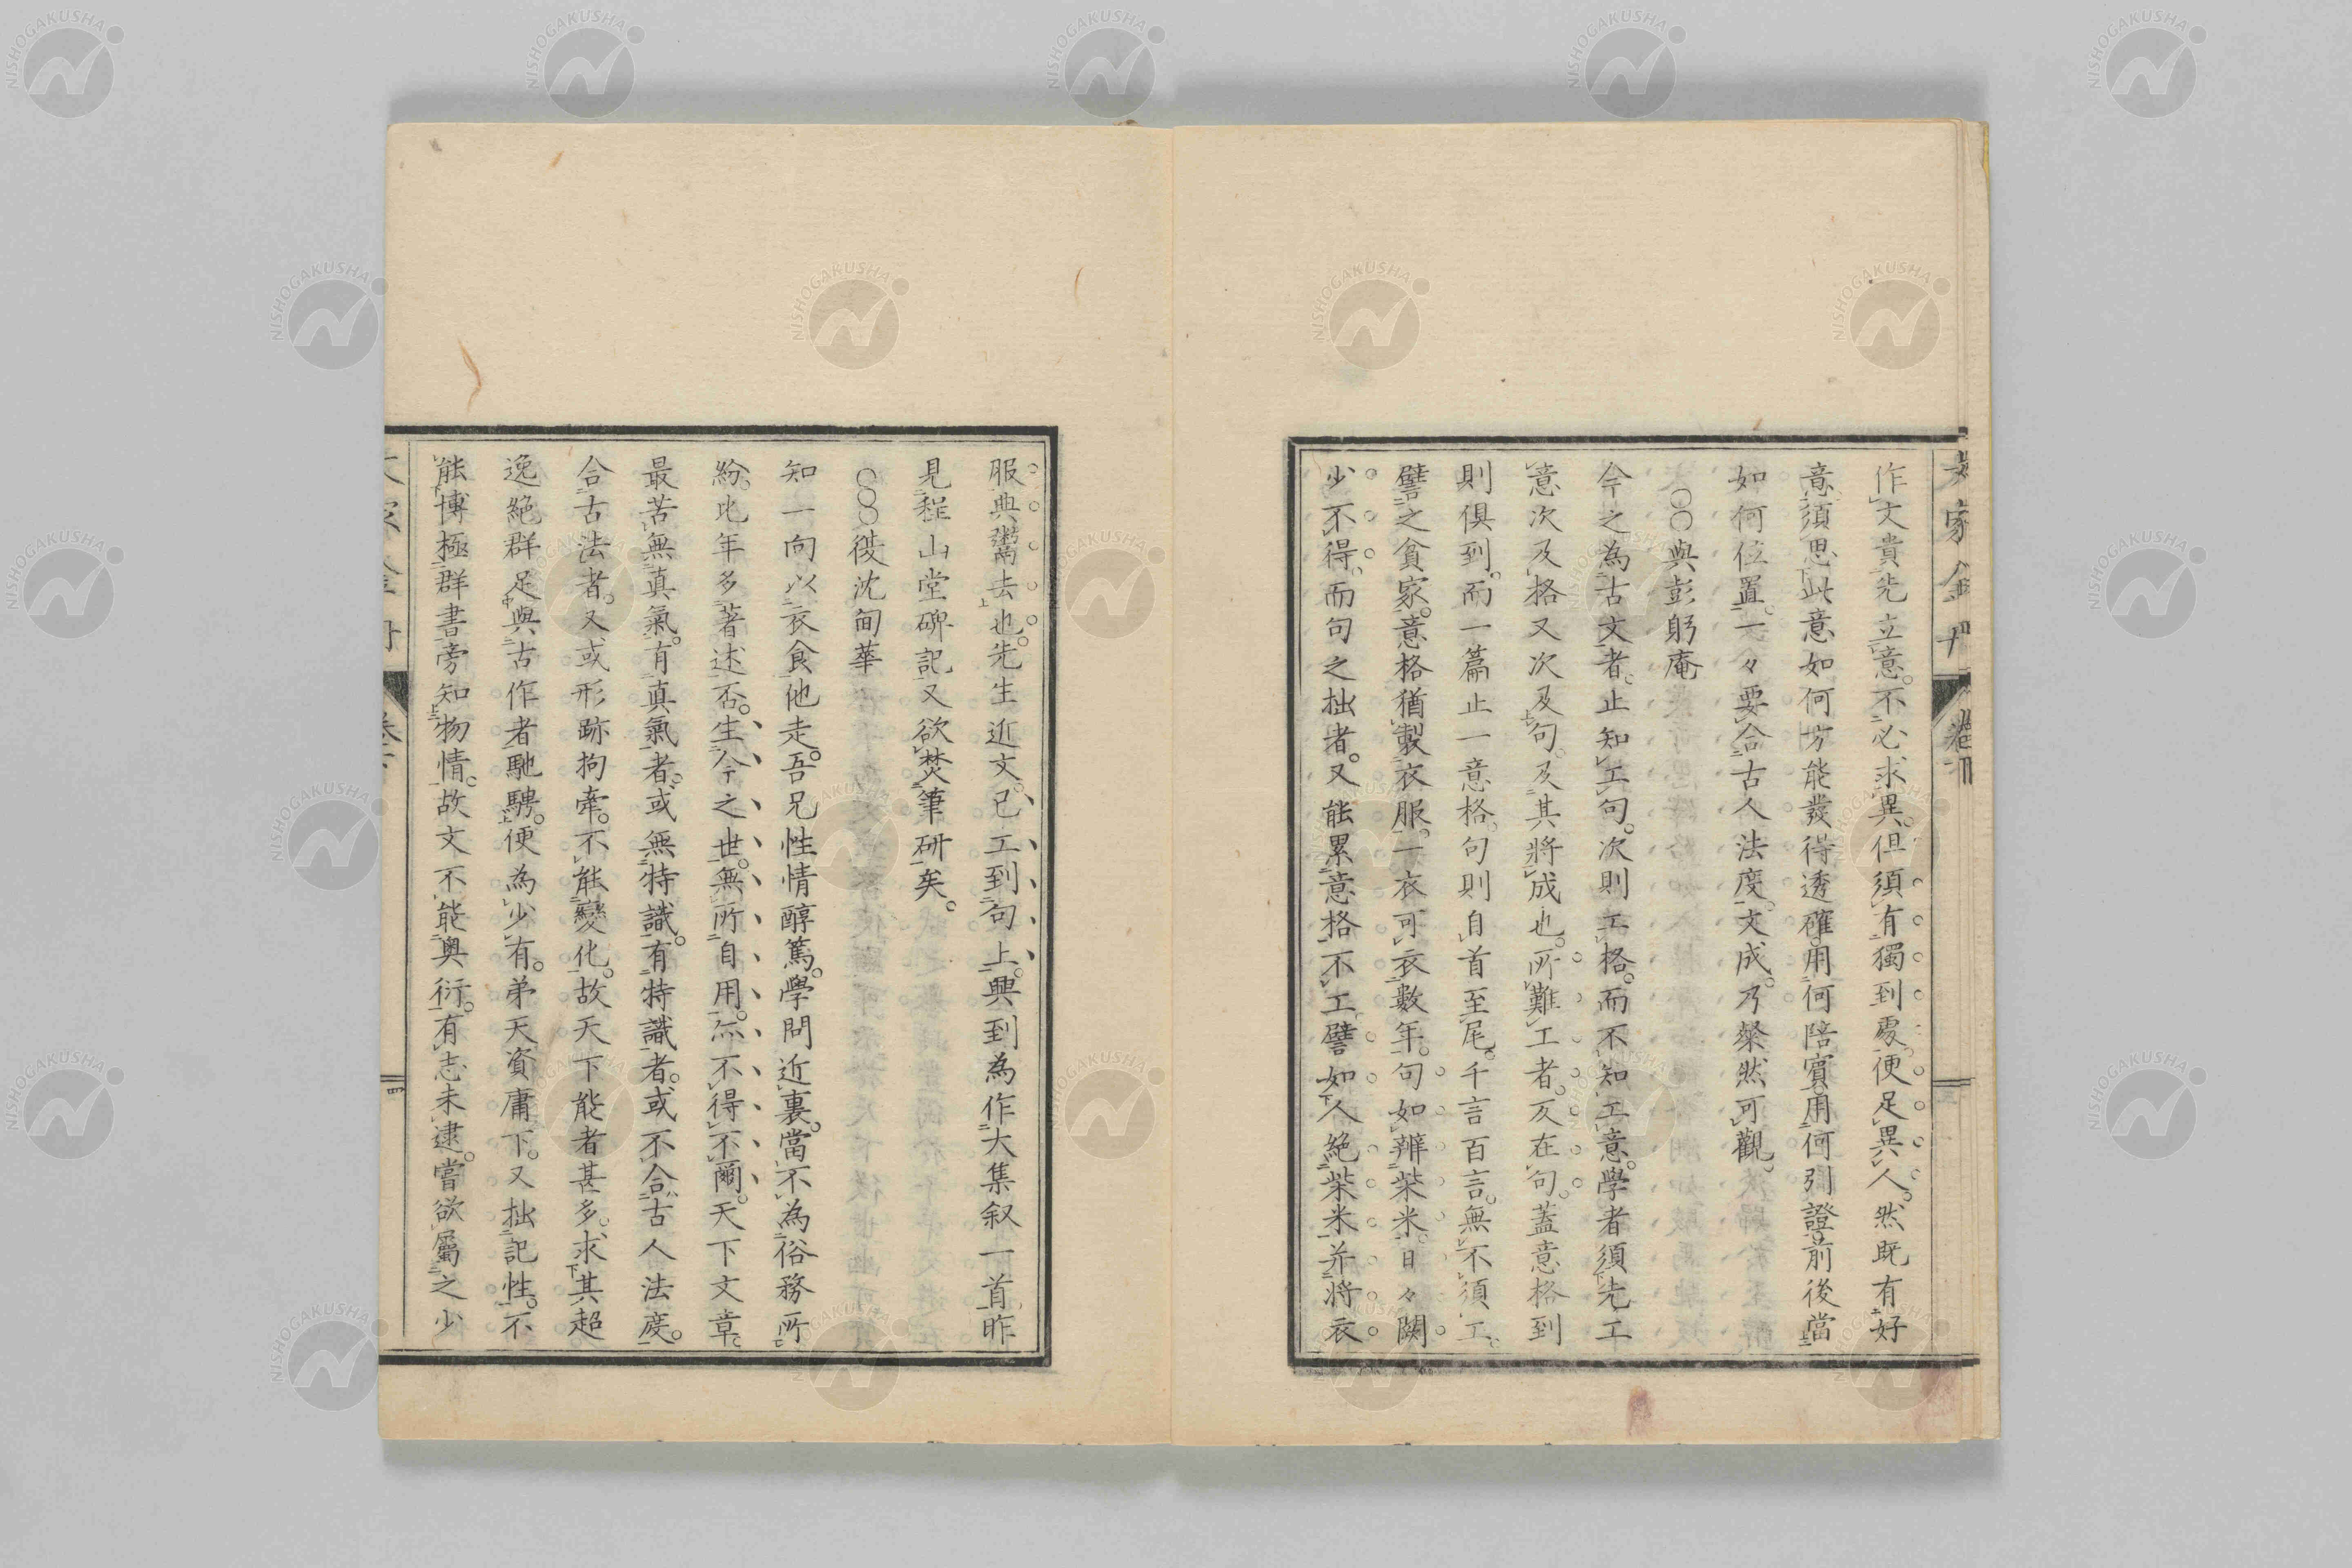 作文貴先立意。不必求異。但須有獨到處。便足異人。然既有好
意。須思此意如何方能發得透確。用何陪賓。用何引證。前後當
如何位置。一々要合古人法度。文成。乃粲然可觀。
〇〇與彭躬庵
今之為古文者。止知工句。次則工格。而不知工意。學者須先工
意次及格又次及句。及其將成也。所難工者。反在句。蓋意格到
則俱到。而一篇止一意格。句則自首至尾。千言百言。無不須工。
譬之貧家。意格猶製衣服。一衣可衣數年。句如辦柴米。日々闕
少不得。而句之拙者。又能累意格不工。譬如人絕柴米并將衣
服典鬻去也。先生近文。已工到句上。興到為作大集叙一首昨
見程山堂碑記又欲焚筆研矣。
〇〇〇復沈甸華
知一向以衣食他走。吾兄性情醇篤。學問近裏。當不為俗務所
紛。比年多著述否。生今之世。無所自用。亦不得不爾。天下文章。
最苦無真氣。有真氣者。或無特識。有特識者。或不合古人法度。
合古法者。又或形跡拘牽。不能變化。故天下能者甚多。求其超
逸絕群足與古作者馳騁。便為少有。弟天資庸下。又拙記性。不
能博極群書旁知物情。故文不能奧衍。有志未逮。嘗欲屬之少